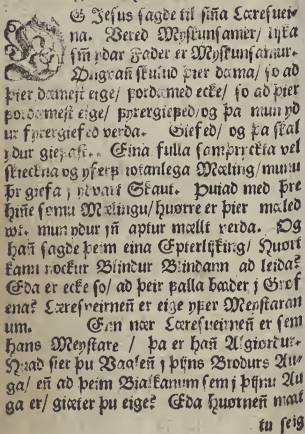 OG Jesus sagde til siña Læresuei-
na. Vered Myskunsamer/ lijka
sem ydar Fader er Myskunsamur.
Ongvañ skulud þier dæma/ so ad
þier dæmest eige/ fordæmed ecke/ so ad þier
fordæmest eige/ fyrergiefed/ og þa mun yd
ur fyrergiefed verda. Giefed/ og þa skal
ydur giefast. Eina fulla samþryckta vel
skieckna og yferfliotanlega Mæling/ munu
þr giefa j ydvart Skaut. Þuiad med þre
hiñe sømu Mælingu/ huørre er þier mæled
vt. mun ydur jñ aptur mællt verda. Og
hañ sagde þeim eina Epterlijking/ Huort
kann nockur Blindur Blindann ad leida?
Eda er ecke so/ ad þeir falla bader j Grøf
ena? Læresveirneñ er eige yfer Meystaran
um. Enn nær Læresueirneñ er sem
hans Meystare / þa er hañ Algiørdur.
Huad sier þu Vagleñ j þijns Brodurs Au-
ga/ eñ ad þeim Bialkanum sem j þijnu Au
ga er/ giæter þu eige? Eda huørneñ mátt
tu seig